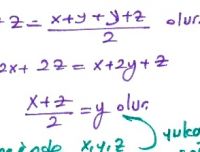 z = x+y+y+z / 2 olur
2x+ 2z = x+2y+z
x+z / 2 = y olur
x,y,z